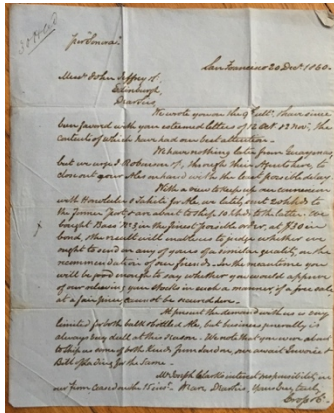 pr "Sonora"
San Francisco 20 Decr 1860.
Messrs John Jeffrey &Co.
Edinburgh,
Dear Sirs,
We wrote you on the 9th Ulto. & have since
been favored with your esteemed letters of 12 Oct & 2 Novr; the
contents of which have had our best attention.
We have nothing late from Guaymas,
but we urged Robinson &Co, through their Agents here, to
close out your Ales on hand with the least possible delay.
With a view to keep up our connexion
with Honolulu & Tahiti for Ale we lately sent 20 hhds to
the former Port, & are about to ship 10 hhds to the latter. We
bought Bass No 3 in the finest possible order, at $30 in
bond, the result will enable us to judge whether we
ought to send on any of yours of a similar quality, on the
recommendation of our friends. In the meantime you
will be good enough to say whether you would approve
of our relieving your Stocks in such a manner, if a free sale
at a fair price, cannot be secured here.
At present the demand with us is very
limited for both bulk & bottled Ale, but business generally is
always very dull at this season. We note that you were about
to ship us some of both kinds from London, and await Invoice &
Bill of Lading for the same.
Mr Joseph Clark's interest & responsibility in
our firm ceased on the 15 inst. We are, Dear Sirs, Yours very truly
Cross &Co.